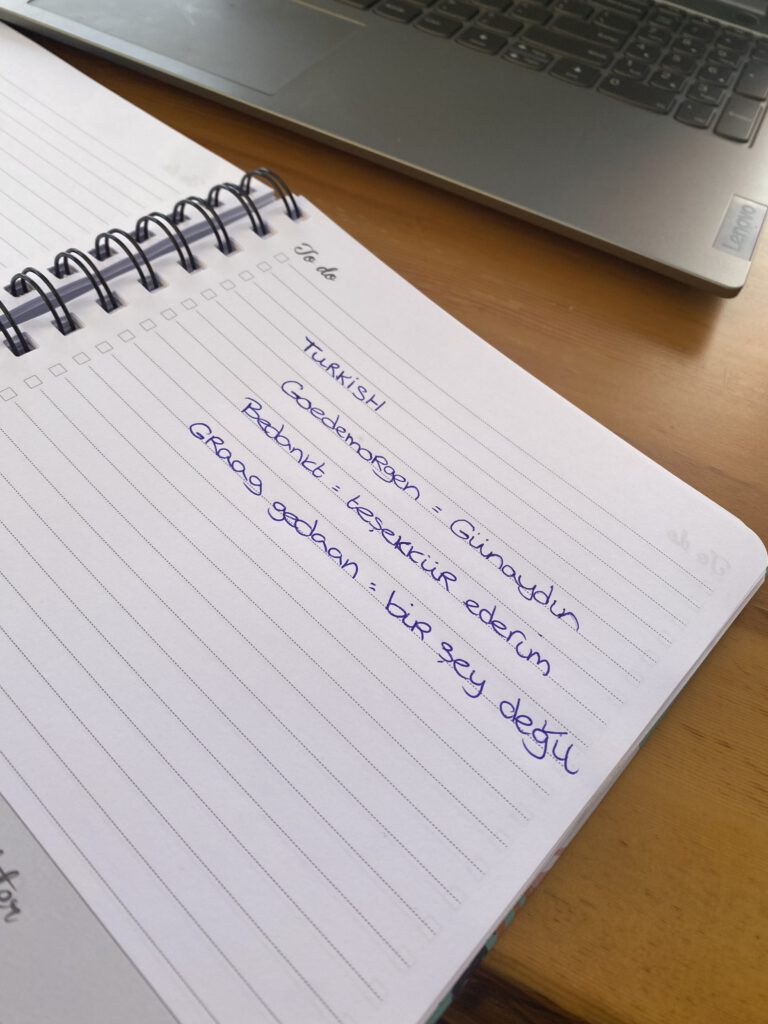 Lenovo
To do
TURKİSH
Goedemorgen = Günaydın
Bedankt = teşekkür ederim
Graag gedaan = bir şey değil